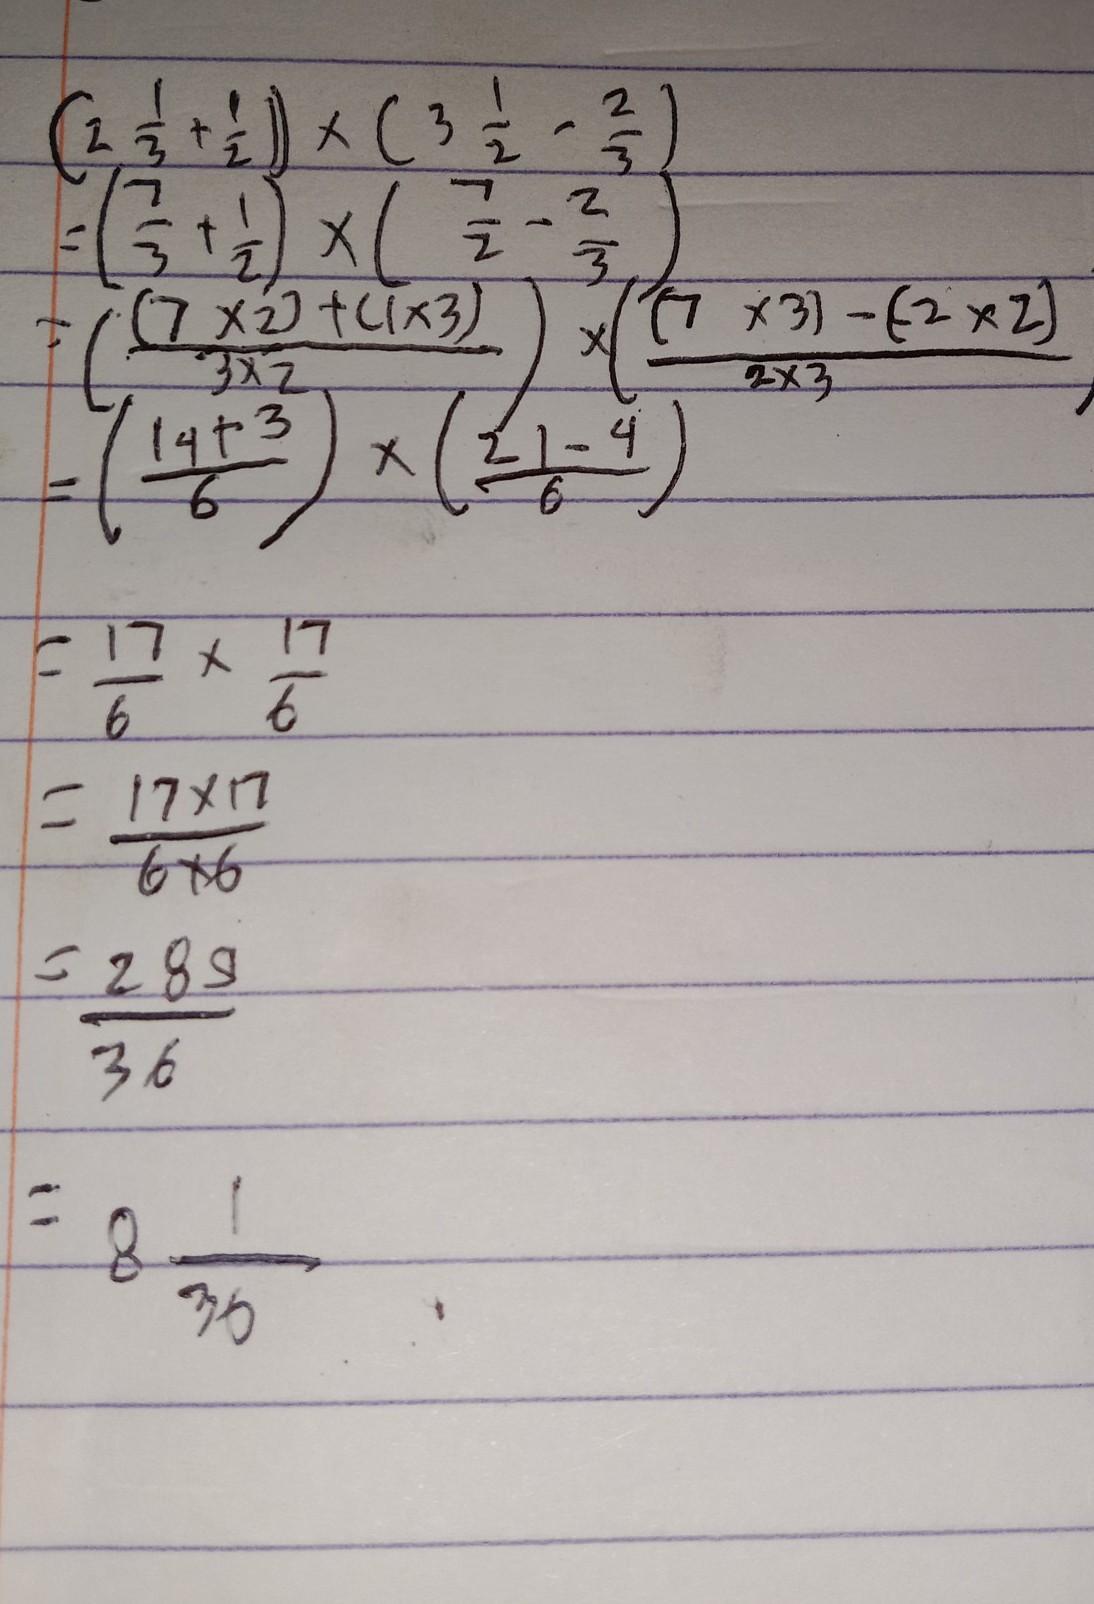 (2 1/3 + 1/2)) × (3 1/2 - 2/3)
= (7/3 + 1/2) × (7/2 - 2/3)
= ((7 × 2) + (1×3) / 3×2) × ((7 × 3) - (2 × 2) / 2×3)
= (14 + 3 / 6) × (21 - 4 / 6)
= 17/6 × 17/6
= 17×17 / 6×6
= 289 / 36
= 8 1/36